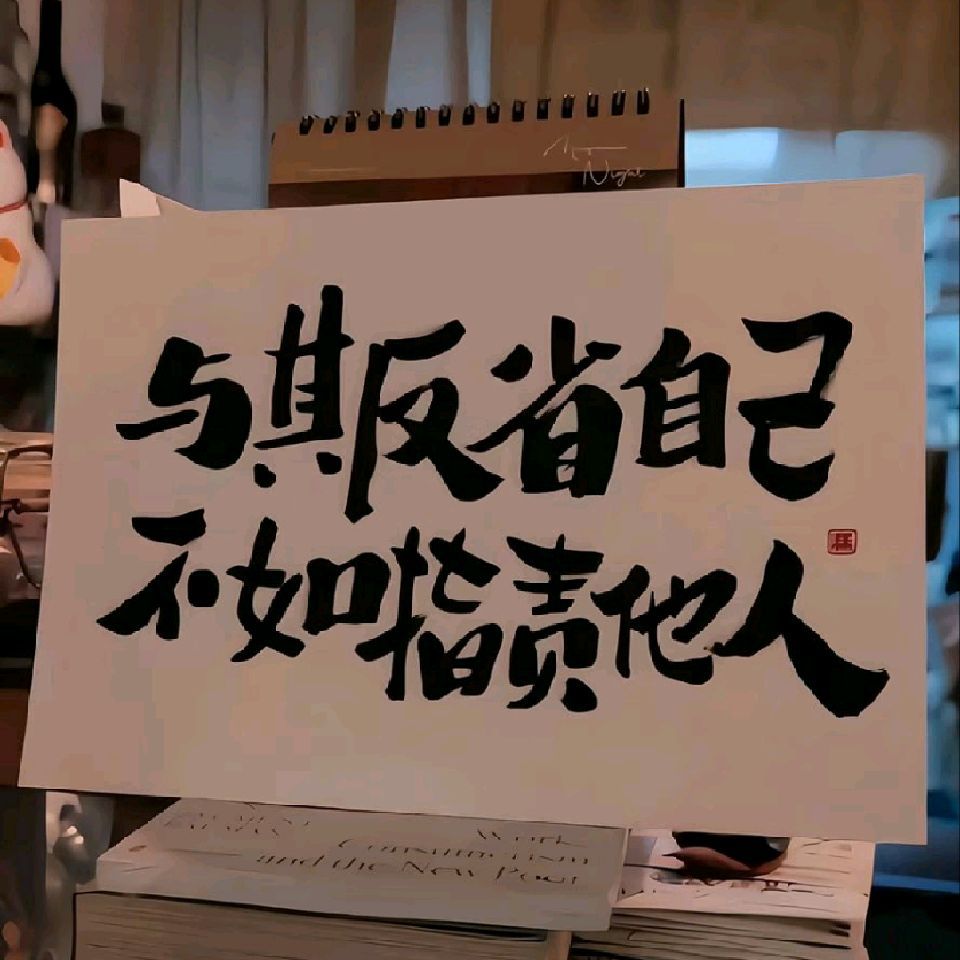 Night
与其反省自己
不如指责他人
Work
and the New Poor